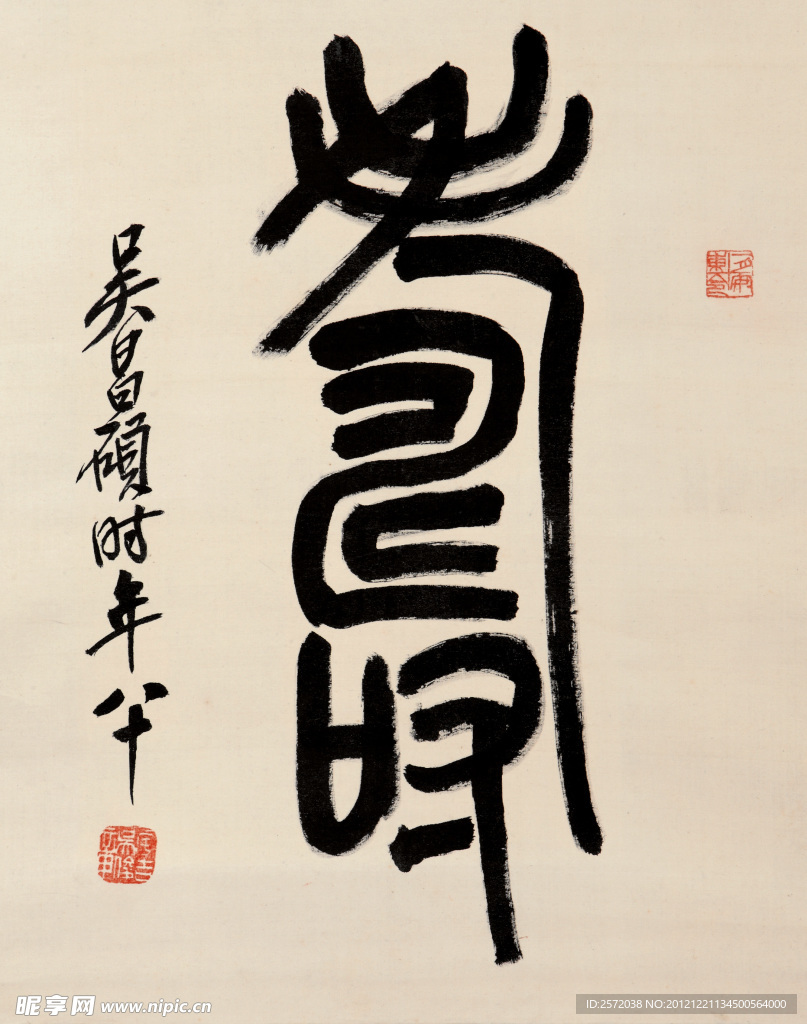 壽
吴昌碩时年八十
昵享网 www.nipic.cn
ID:2572038 NO:20121221134500564000